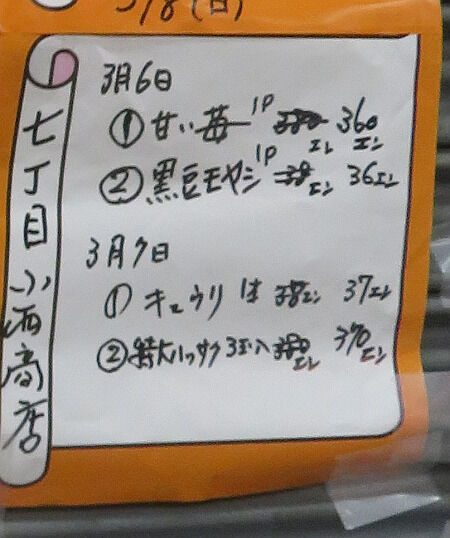 3/8(日)
3月6日
①甘い苺 1P 380エン 360エン
②黒豆モヤシ 1P 38エン 36エン
3月7日
①キュウリ 1本 38エン 37エン
②特大ハッサク 3玉入 380エン 370エン
七丁目小酒商店